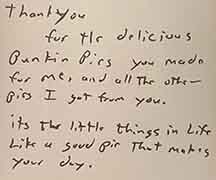 thankyou
for the delicious
Punkin Pies you made
for me, and all the other
pies I got from you.
its the little things in Life
Like a good pie that makes
your day.